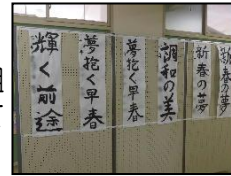 輝く前途
夢抱く早春
夢抱く早春
調和の美
新春の夢
新春の夢